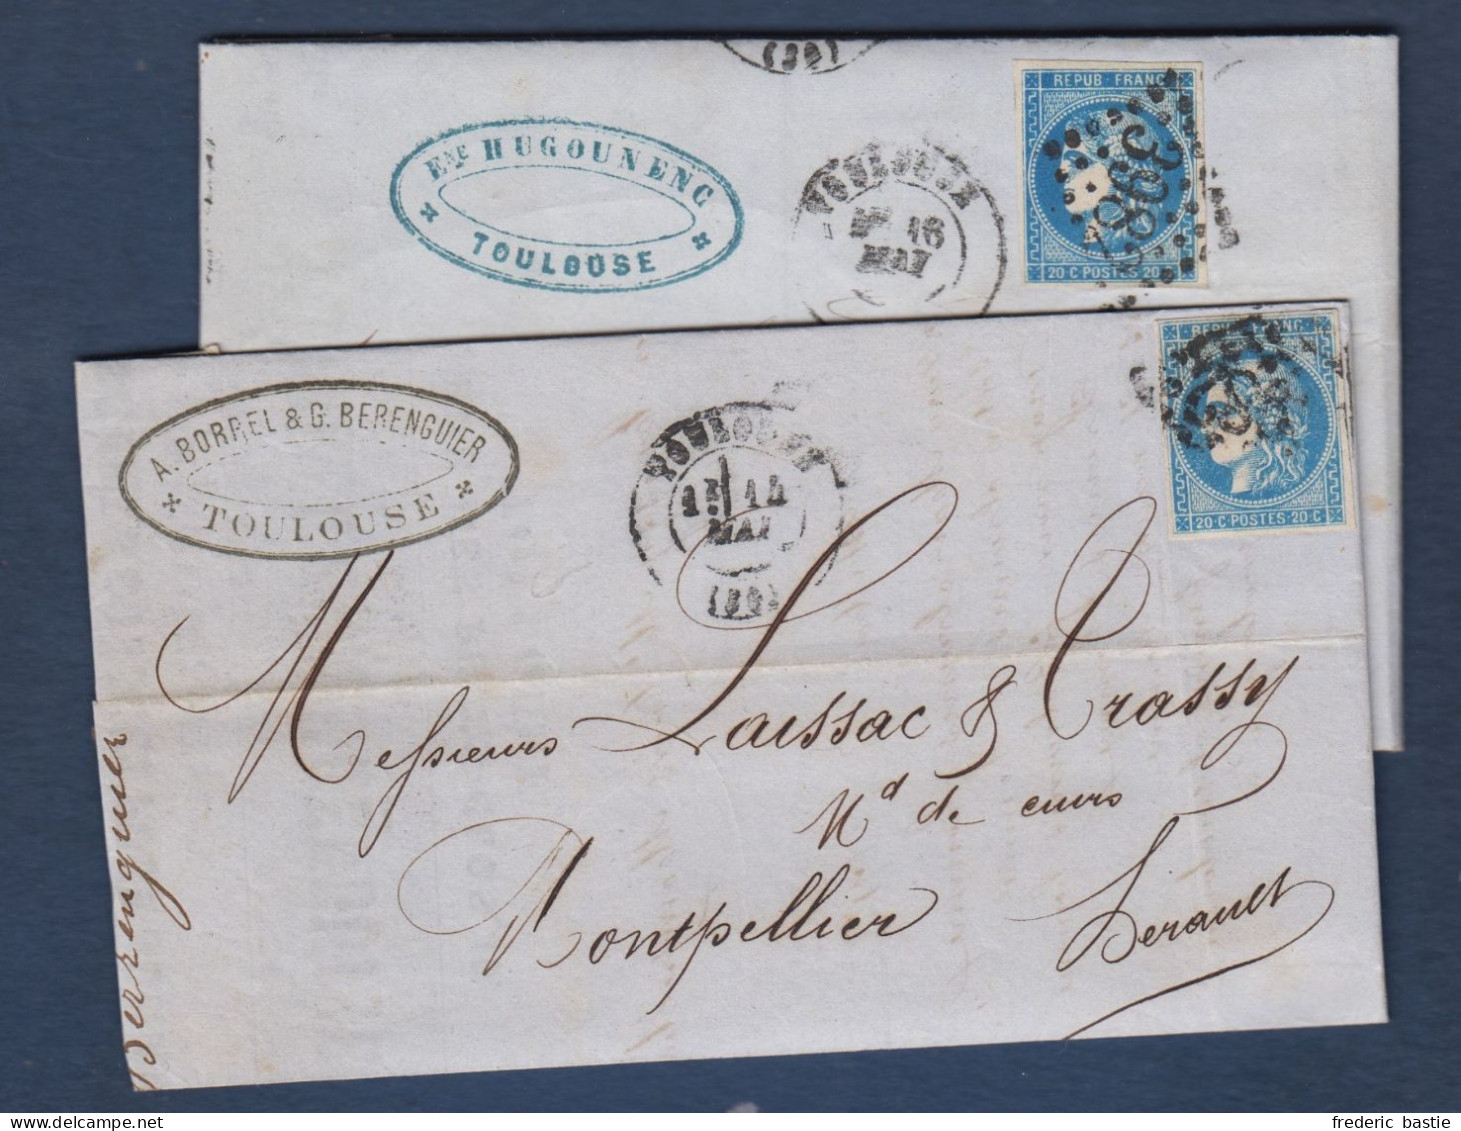 (30)
Ene HUGOUNENC
TOULOUSE
TOULOUSE
16
MAI
REPUB. FRANC.
3982
20·C·POSTES·20·C
A. BORREL & G. BERENGUIER
TOULOUSE
TOULOUSE
14
MAI
REPUB. FRANC.
20·C·POSTES·20·C
Messieurs Laussac & Crassy
Md de cuirs
Montpellier
Herault
Berrenguier
frederic bastie